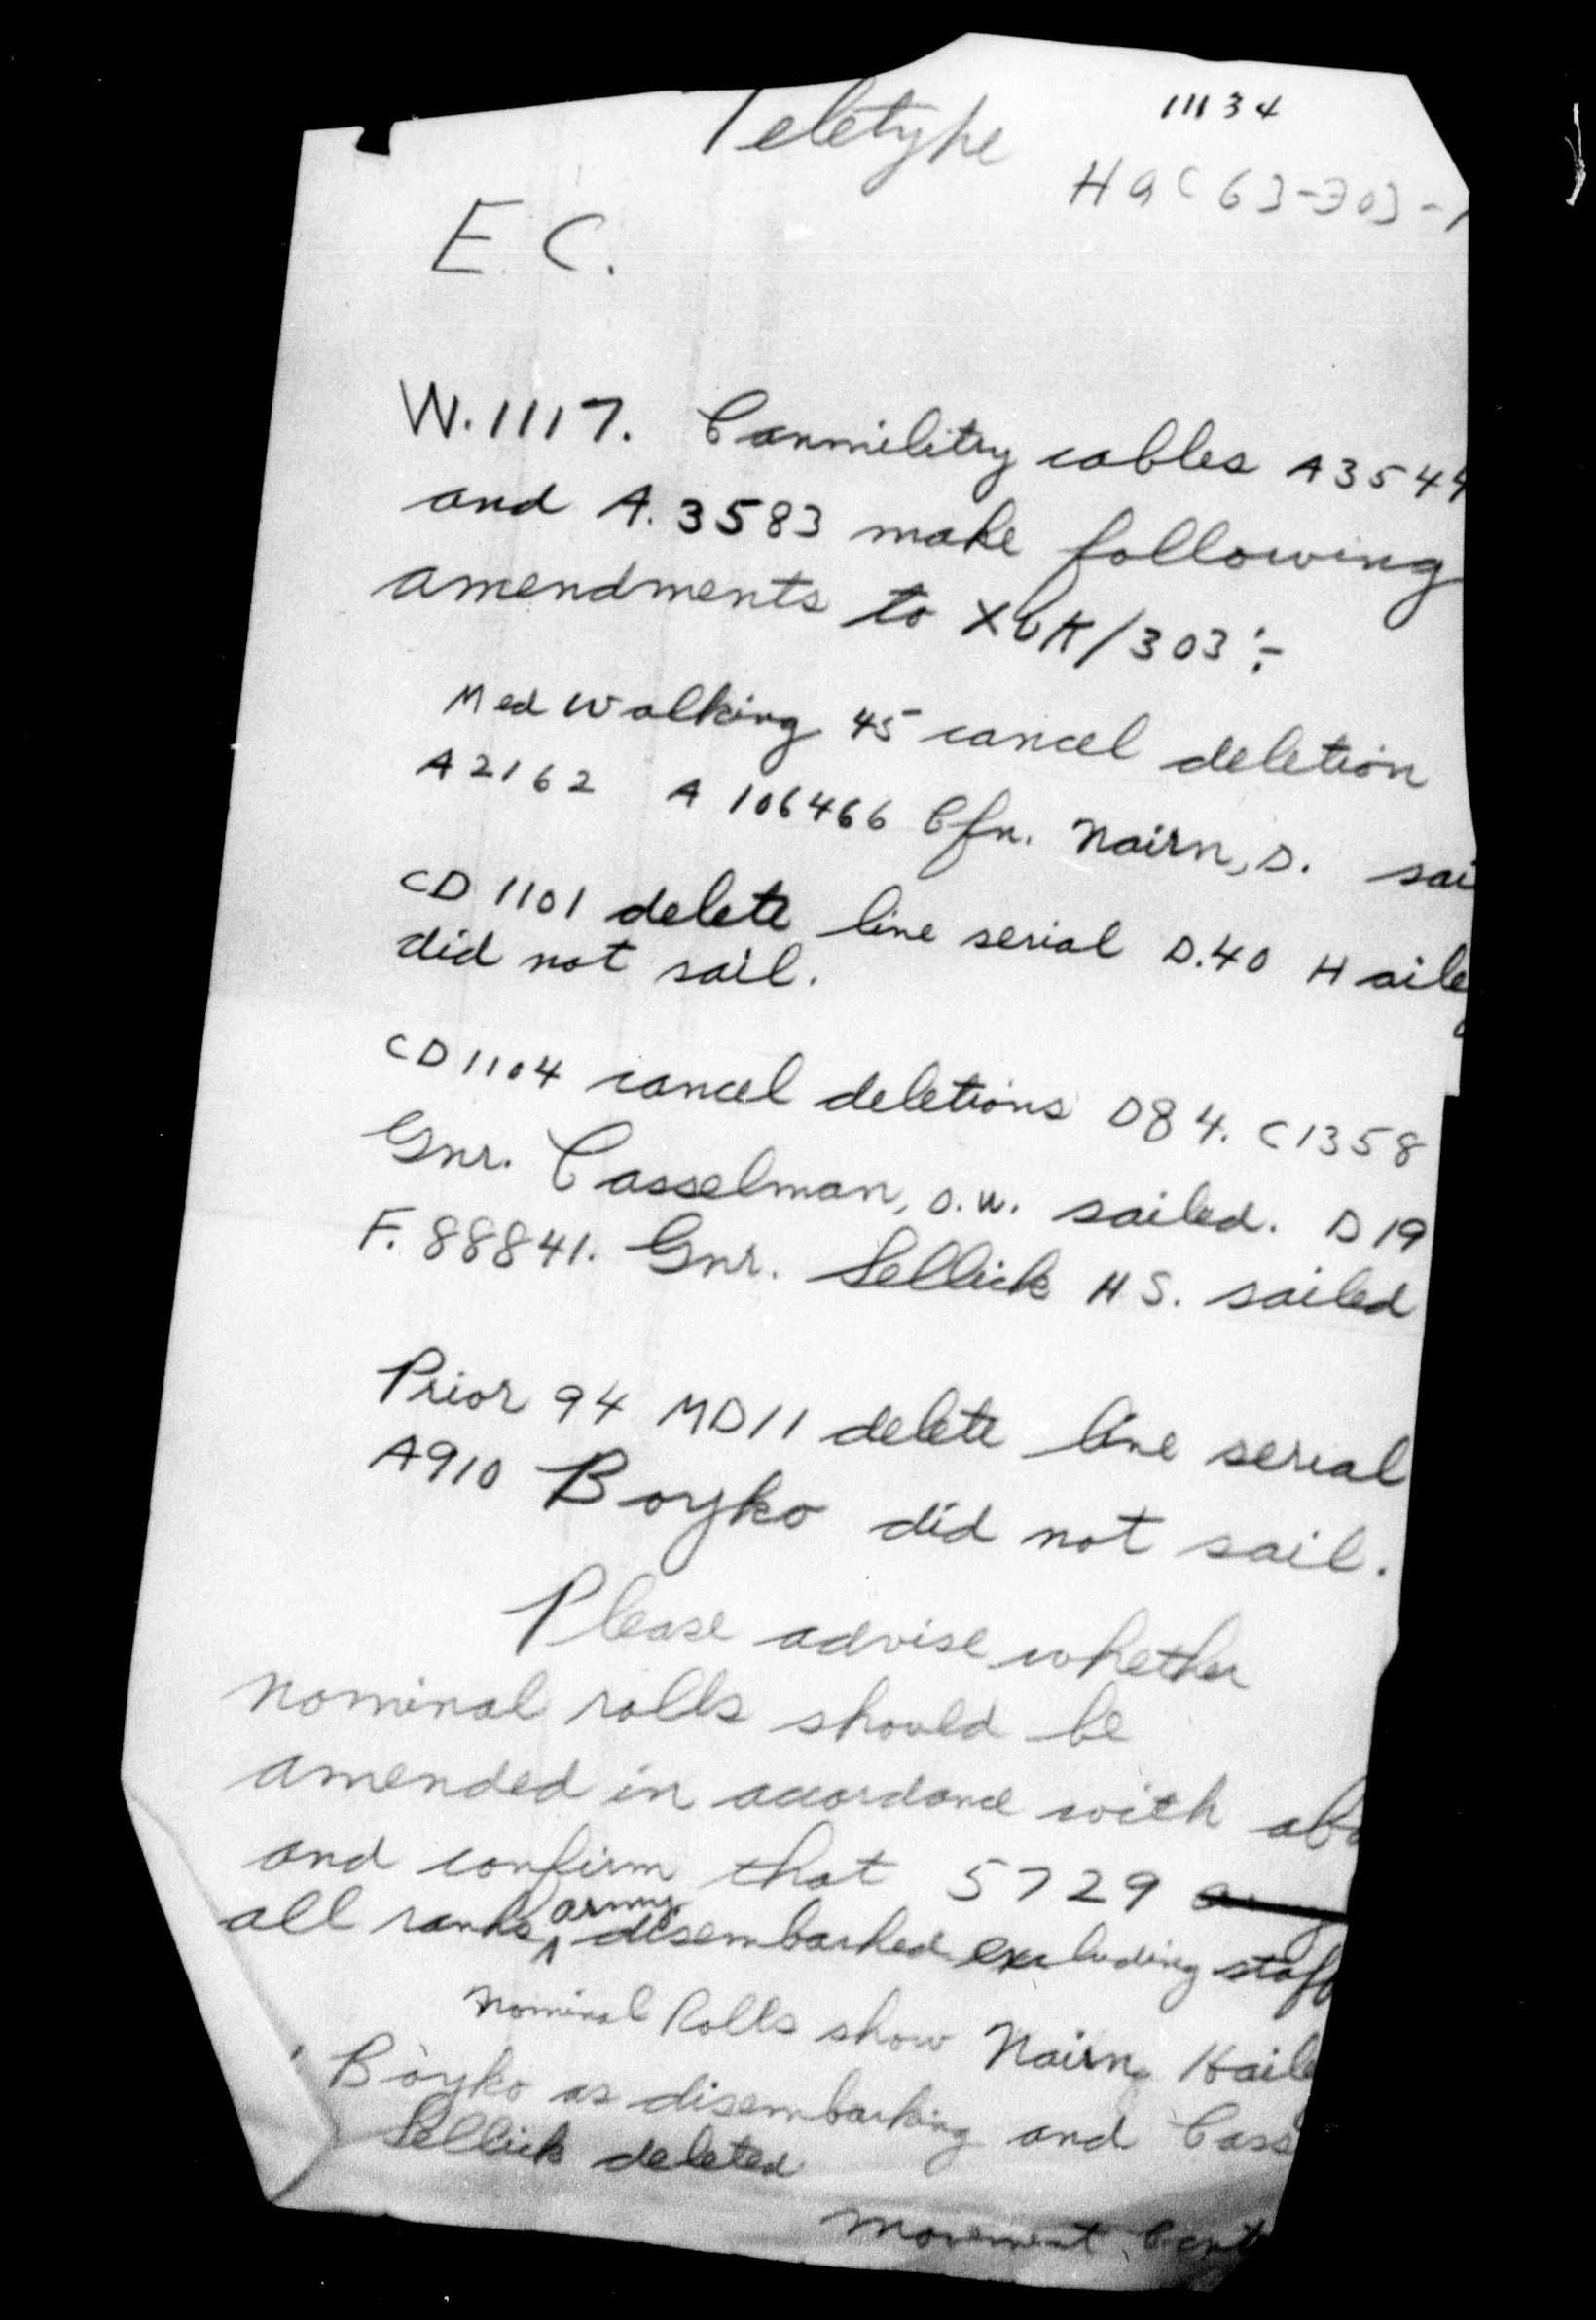 11134
Teletype
HQC 63-303-1
E.C.
W.1117. Canmilitry cables A3544
and A.3583 make following
amendments to XUK/303:-
Med Walking 45 cancel deletion
A2162 A 106466 Cfn. Nairn, D. sai
CD 1101 delete line serial D.40 Haile
did not sail.
CD1104 cancel deletions D84. C1358
Gnr. Casselman, O.W. sailed. D19
F. 88841. Gnr. Sellick H S. sailed
Prior 94 MD11 delete line serial
A910 Boyko did not sail.
Please advise whether
nominal rolls should be
amended in accordance with abo
and confirm that 5729
all ranks army disembarked excluding staff
Nominal Rolls show Nairn, Haile
Boyko as disembarking and Cass
Sellick deleted
Movement Cont